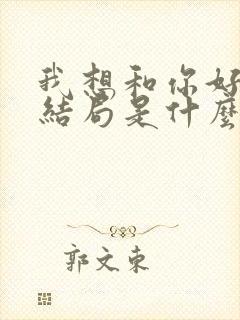 我想和你好
結局是什麼
郭文東